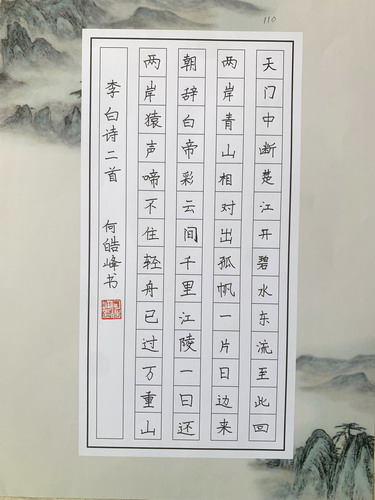 110
天门中断楚江开碧水东流至此回
两岸青山相对出孤帆一片日边来
朝辞白帝彩云间千里江陵一日还
两岸猿声啼不住轻舟已过万重山
李白诗二首 何皓峰书